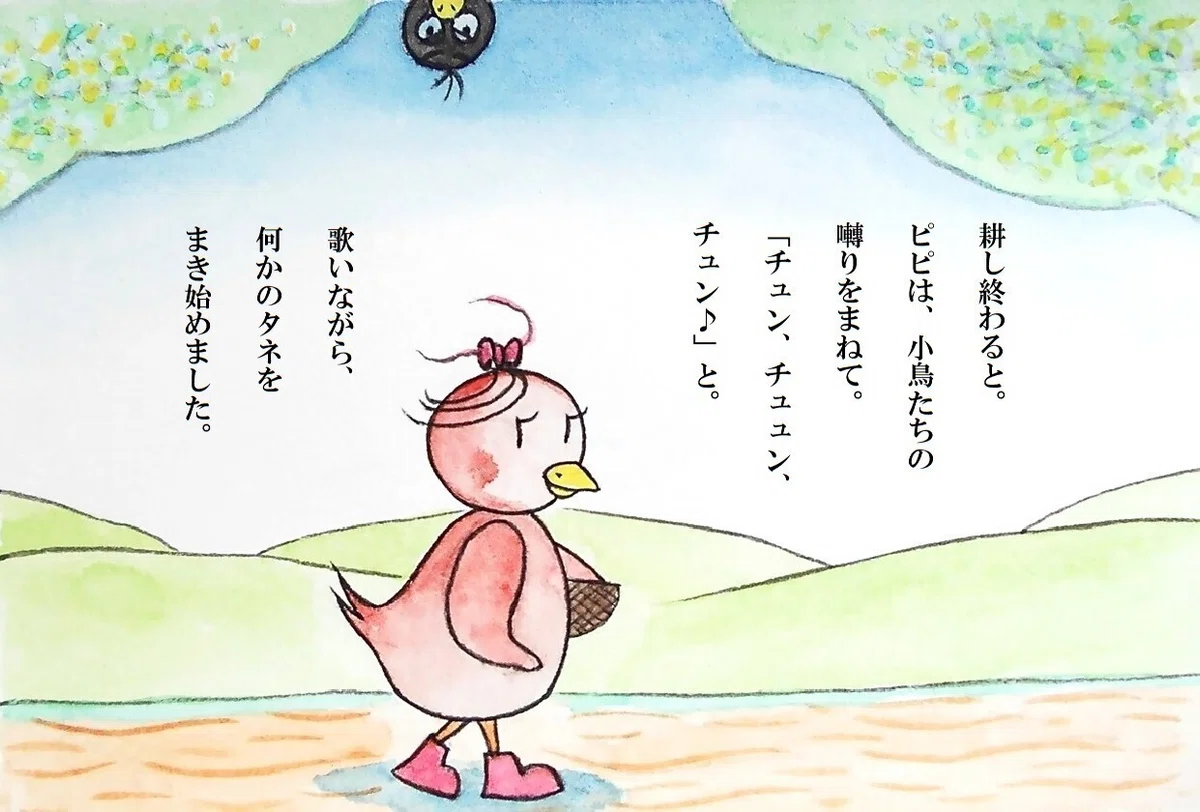 耕し終わると。
ピピは、小鳥たちの
囀りをまねて。
「チュン、チュュン、
チュン♪」と。
歌いながら、
何かのタネを
まき始めました。